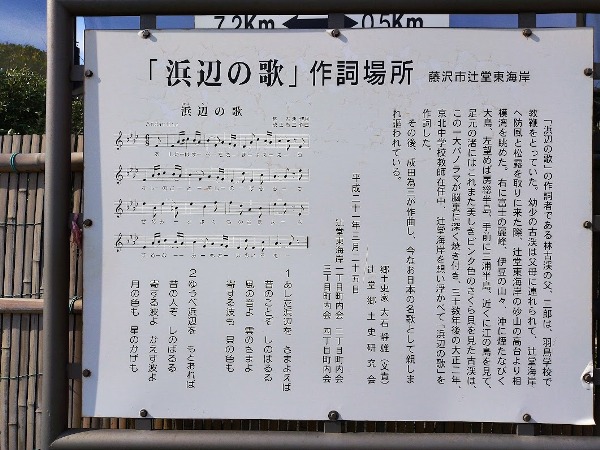 7.2Km ← 0.5Km
「浜辺の歌」作詞場所 藤沢市辻堂東海岸
浜辺の歌
「浜辺の歌」の作詞者である林古溪の父、三郎は、羽鳥学校で
教鞭をとっていた。幼少の古渓は父母に連れられて、辻堂海岸
へ防風と松露を取りに来た際、辻堂東海岸の砂山の高台より相
模湾を眺めた。右に富士の麗峰、伊豆の山々、沖に煙たなびく
大島、左望めば房総半島、手前に三浦半島、近くに江の島を見て、
足元の渚にはこれまた美しきピンク色のさくら貝を見た古渓は、
この一大パノラマが脳裏に深く焼き付き、三十数年後の大正二年、
京北中学校教師在任中、辻堂海岸を想い浮かべて『浜辺の歌』を
作詞した。
その後、成田為三が作曲し、今なお日本の名歌として親しま
れ謳われている。
平成二十一年三月二十五日
郷土史家 大石静雄(文責)
辻堂郷土史研究会
辻堂東海岸 一丁目町内会 二丁目町内会
三丁目町内会 四丁目町内会
1あした浜辺を さまよえば
昔のことぞ しのばるる
風の音よ 雲のさまよ
寄する波も 貝の色も
2ゆうべ浜辺を もとおれば
昔の人ぞ しのばるる
寄する波よ かえす波よ
月の色も 星のかげも